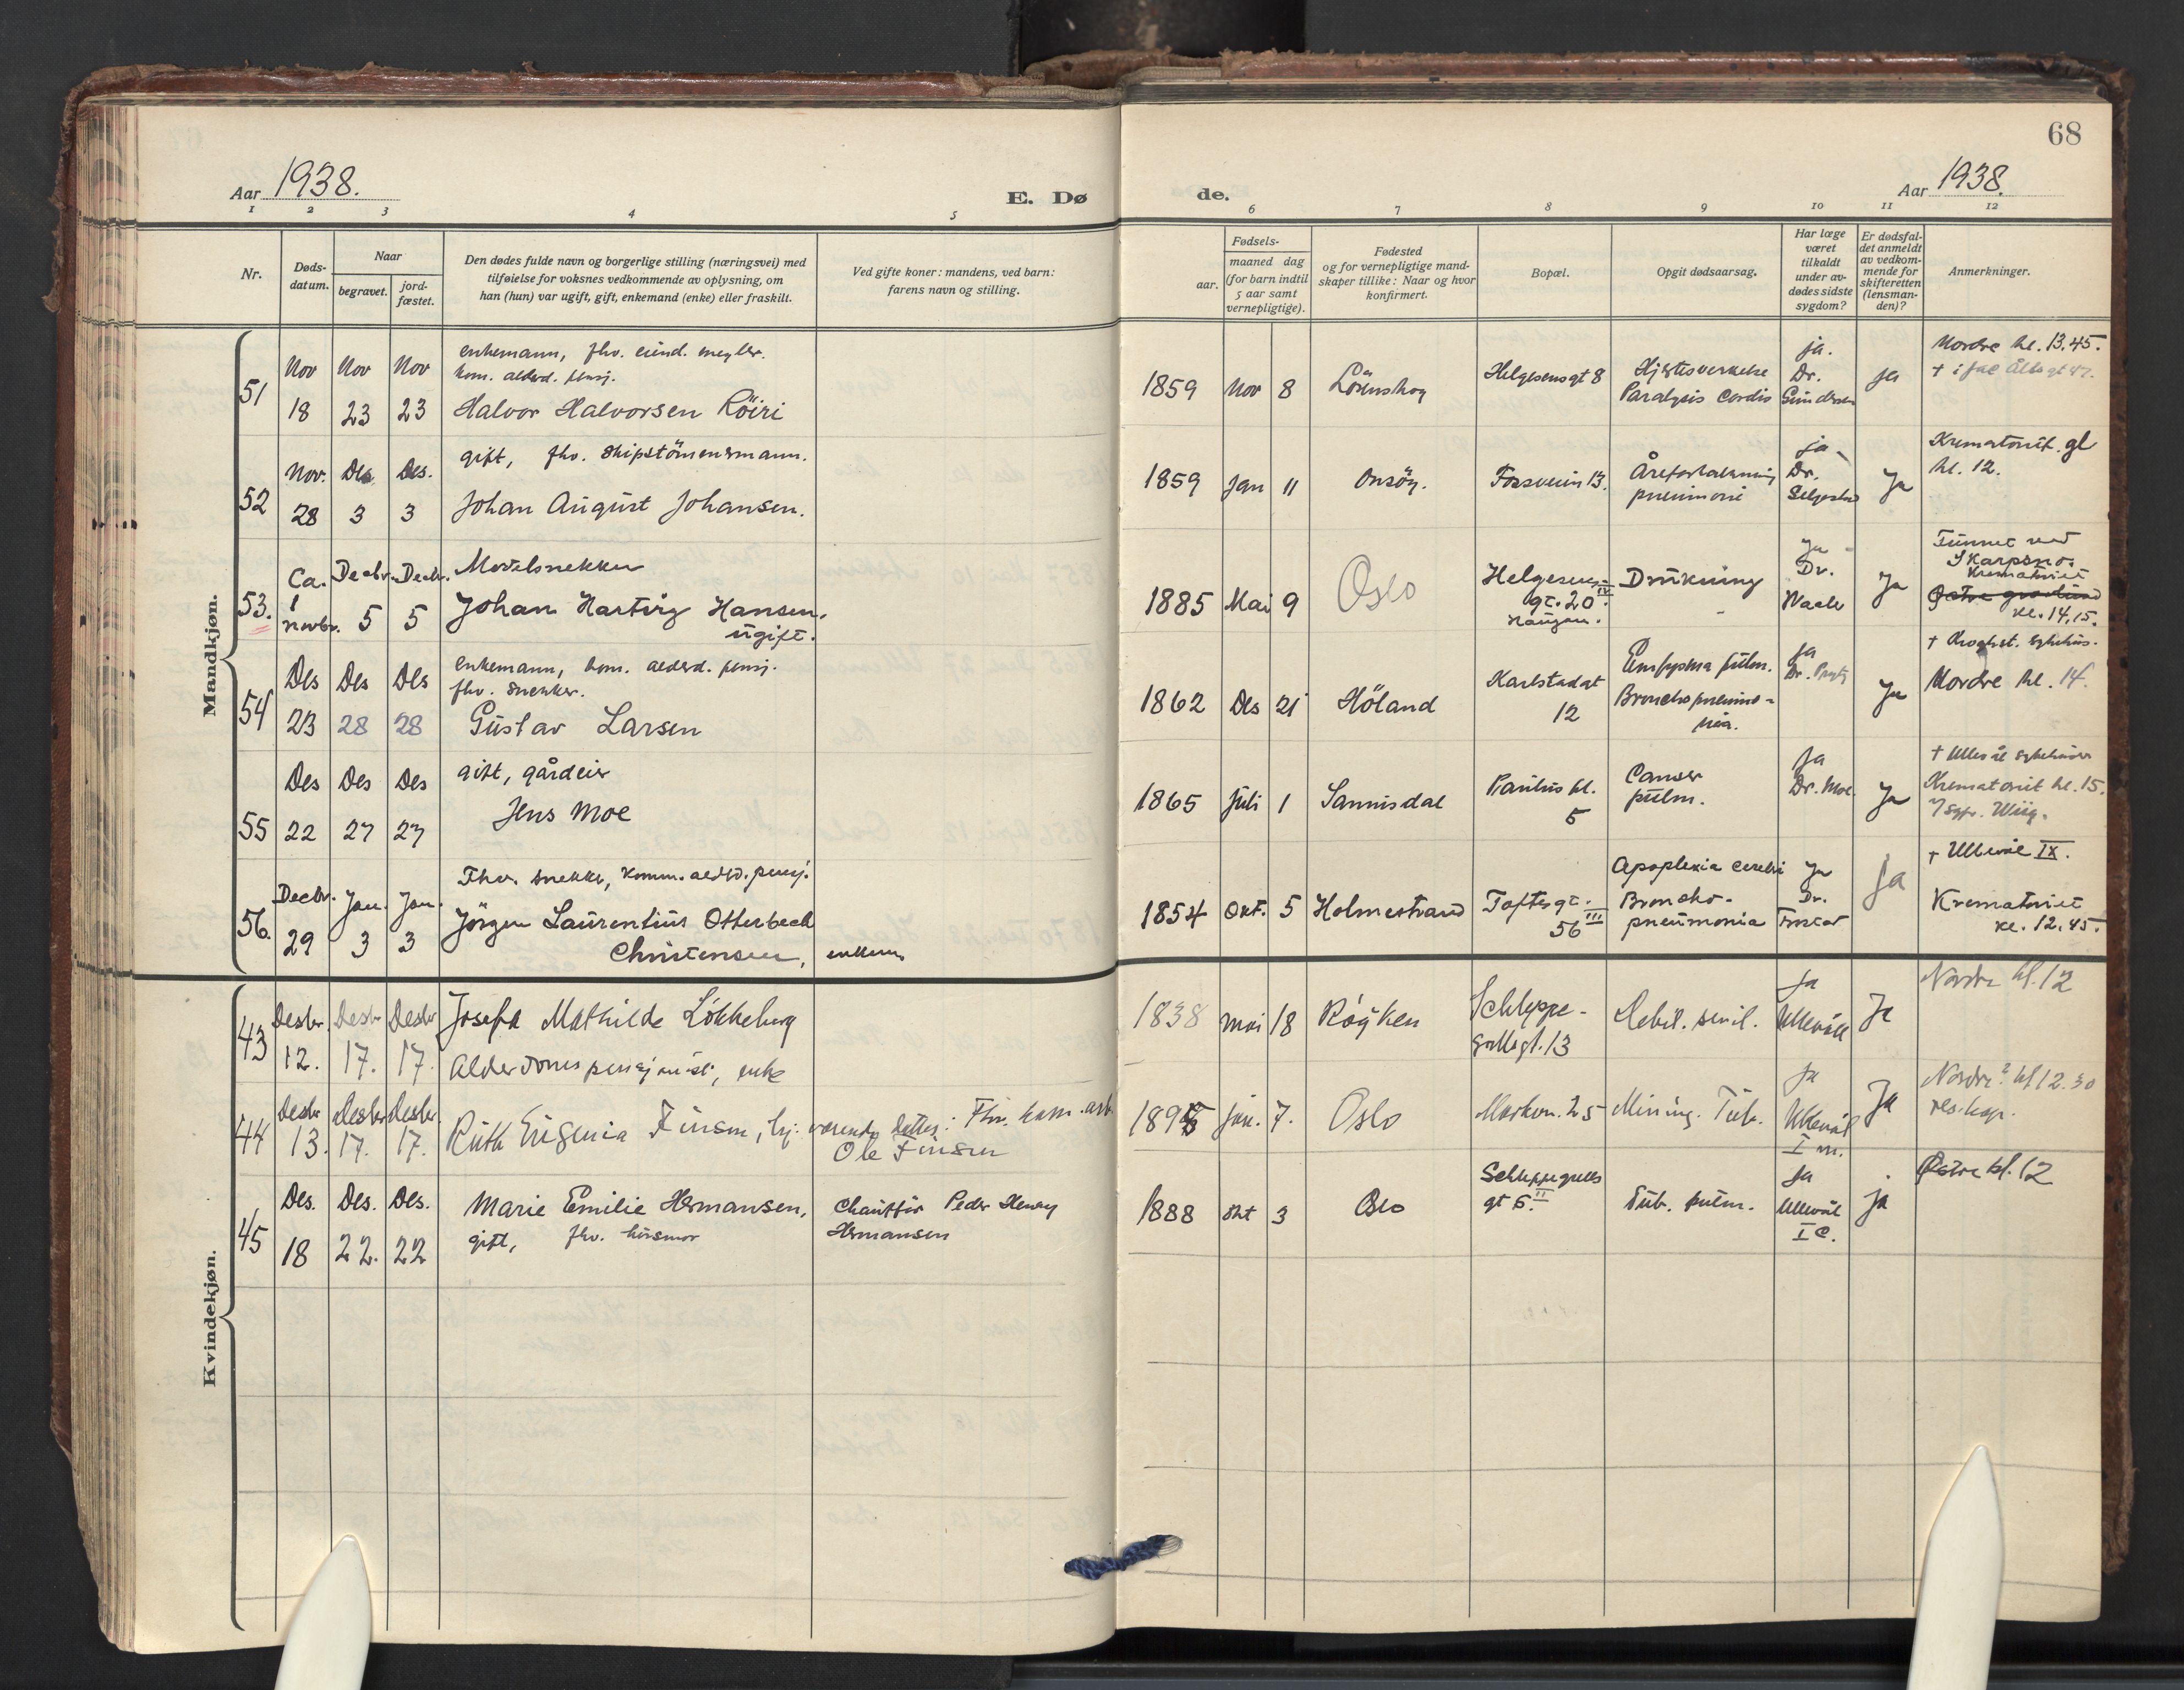 68
Aar 1938.
E. Dø
de.
Aar 1938.
1 2 3 4 5
6 7 8 9 10 11 12
Nr.
Døds-
datum.
Naar
begravet.
jord-
fæstet.
Den dødes fulde navn og borgerlige stilling (næringsvei) med
tilføielse for voksnes vedkommende av oplysning, om
han (hun) var ugift, gift, enkemand (enke) eller fraskilt.
Ved gifte koner: mandens, ved barn:
farens navn og stilling.
Fødsels-
aar.
maaned dag
(for barn indtil
5 aar samt
vernepligtige).
Fødested
og for vernepligtige mand-
skaper tillike: Naar og hvor
konfirmert.
Bopæl.
Opgit dødsaarsag.
Har læge
været
tilkaldt
under av-
dødes sidste
sygdom?
Er dødsfal-
det anmeldt
av vedkom-
mende for
skifteretten
(lensman-
den)?
Anmerkninger.
Mandkjøn.
51
Nov 18
Nov 23
Nov 23
enkemann, fhv. eiend. megler.
kom. alderd. pensj.
Halvor Halvorsen Röiri
1859 Nov 8
Lörenskog
Helgesensgt 8
Hjertesvekkelse
Paralysis Cordis
ja.
Dr.
Gundersen
ja
Nordre kl. 13,45.
52
Nov. 28
Des 3
Des. 3
gift, fhv. skipstömmermann.
Johan August Johansen.
1859 Jan 11
Onsöy.
Fossveien 13.
Åreforkalkning
pneumoni
ja
Dr.
Ja
Krematoriet. gl
kl. 12.
53.
Ca. 1 novbr.
Decbr. 5
Decbr. 5
Modelsnekker
Johan Hartvig Hansen,
ugift.
1885 Mai 9
Oslo
Helgesens-
gt. 20 IV
Drukning
Ja
Dr.
Waaler
Ja
Funnet ved
Skarpsno.
Krematoriet
Østre gravlund
kl. 14,15.
54
Des 23
Des 28
Des 28
enkemann, kom. alderd. pensj.
fhv. snekker.
Gustav Larsen
1862 Des 21
Höland
Karlstadgt
12
Emfysema pulm.
Bronchopneumo-
nia.
ja
Dr.
Ja
+ Kroghst. sykehus.
Nordre kl. 14.
55
Des 22
Des 27
Des 27
gift, gårdeier
Jens Moe
1865 Juli 1
Sannisdal
Paulus pl.
5
Canser
pulm.
Ja
Dr. Moe.
Ja
+ Ullevål sykehus
Krematoriet kl. 15.
56.
Decbr. 29
Jan. 3
Jan. 3
Fhv. snekker, komm. alderd. pensj.
Jörgen Laurentius Otterbech
Christensen,
enkem.
1854 Okt. 5
Holmestrand
Toftesgt.
56 III
Apoplexia cerebri
Broncho-
pneumonia
Ja
Dr.
Ja
+ Ullevål IX.
Krematoriet
kl. 12,45.
Kvindekjøn.
43
Desbr 12.
Desbr 17.
Desbr 17.
Josefa Mathilde Løkkeberg
Alderdomspensjonist, enke
1838 mai 18
Røyken
Schleppe-
grellsgt. 13
Debil. senil.
Ja
Ullevål
Ja
Nordre kl. 12
44
Desbr 13.
Desbr 17.
Desbr 17.
Ruth Eugenia Finsen, hj. værende datter. Fhv. kom. arb.
Ole Finsen
1895 jan. 7.
Oslo
Markvn. 25
Mening. Tub.
Ja
Ullevål
I m.
Ja
Nordre? kl 12.30
res. kap.
45
Des. 18
Des. 22.
Des. 22
Marie Emilie Hermansen,
gift, fhv. husmor
Chauffør Peder Henry
Hermansen
1888 Okt 3
Oslo
Schleppegrells
gt 5. II
Tub. pulm.
Ja
Ullevål
I C.
ja
Østre kl. 12